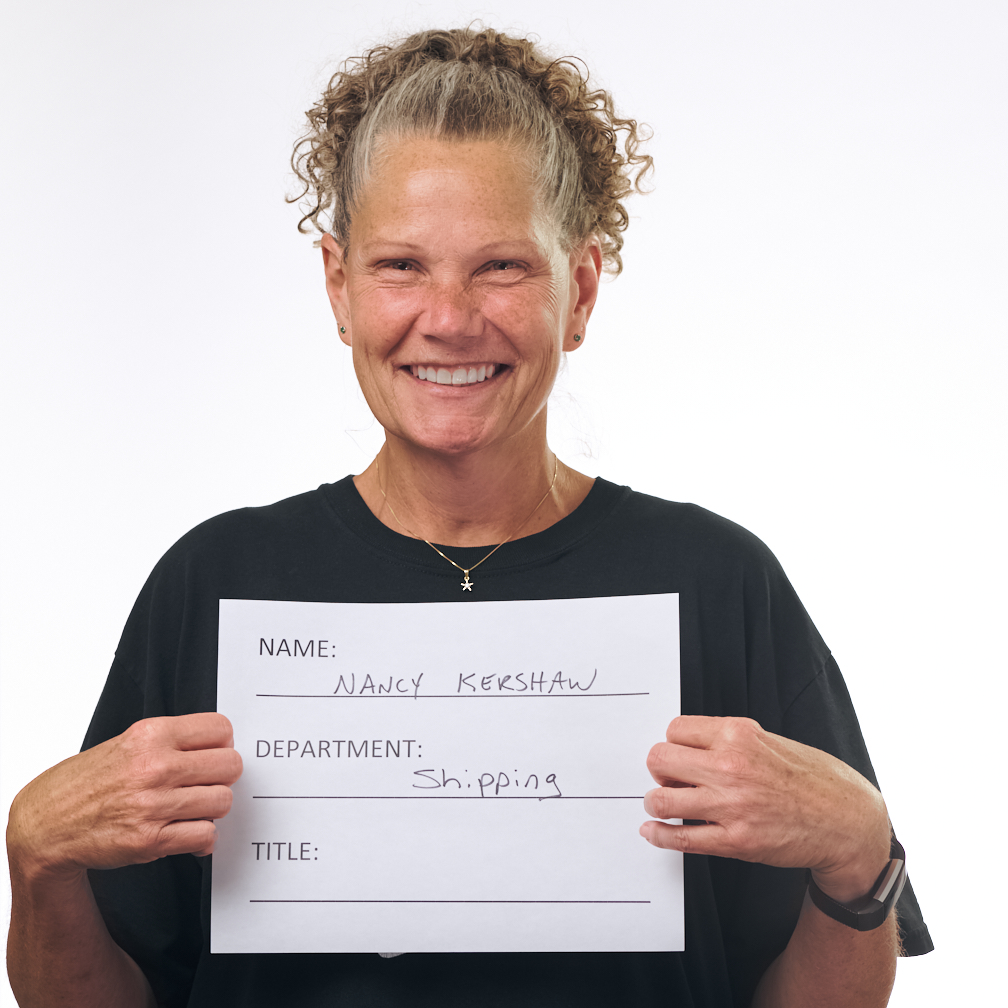 NAME:
NANCY KERSHAW
DEPARTMENT:
Shipping
TITLE: